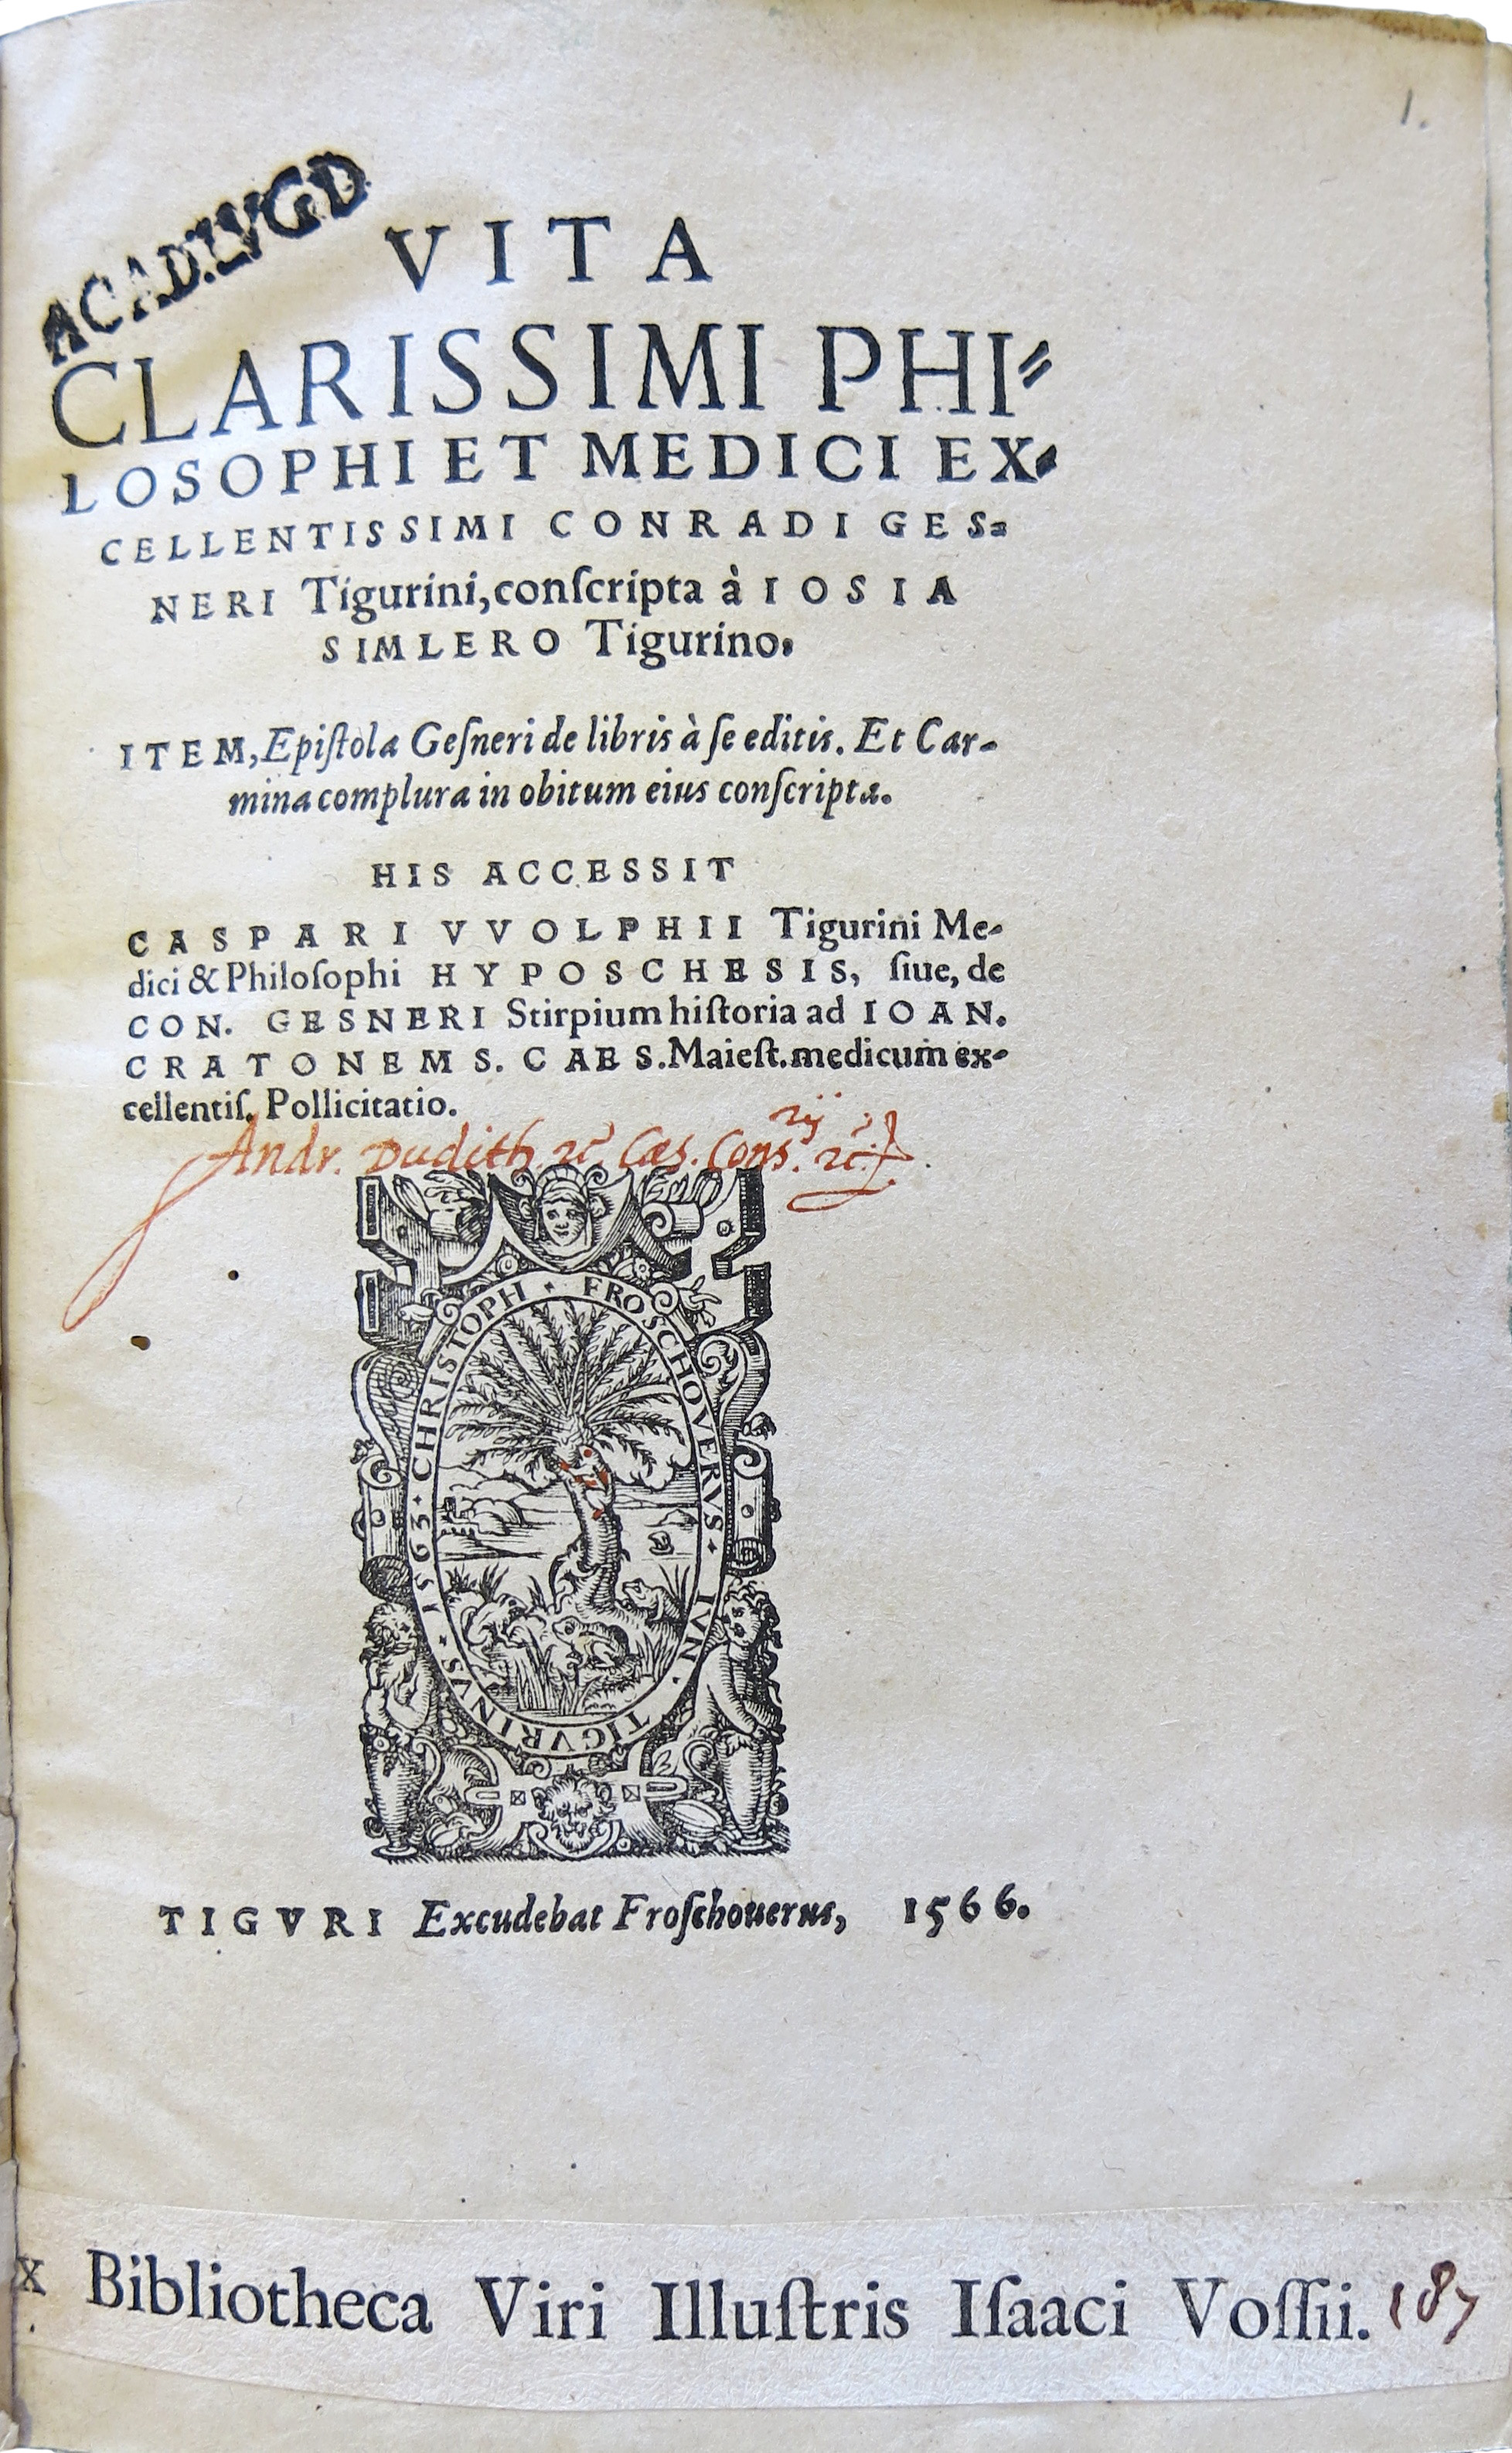 1.
ACAD.LVGD
VITA
CLARISSIMI PHI⸗
LOSOPHI ET MEDICI EX⸗
CELLENTISSIMI CONRADI GES⸗
NERI Tigurini, conſcripta à IOSIA
SIMLERO Tigurino.
ITEM, Epiſtola Geſneri de libris à ſe editis. Et Car-
mina complura in obitum eius conſcripta.
HIS ACCESSIT
CASPARI VVOLPHII Tigurini Me-
dici & Philoſophi HYPOSCHESIS, ſiue, de
CON. GESNERI Stirpium hiſtoria ad IOAN.
CRATONEM S. CAES. Maieſt. medicum ex-
cellentiſ. Pollicitatio.
Andr. Dudith. Cæs. Cons.
1563 · CHRISTOPH · FROSCHOVERVS · IVN · TIGVRINVS ·
TIGVRI Excudebat Froſchouerus, 1566.
X Bibliotheca Viri Illuſtris Iſaaci Voſſii. 187